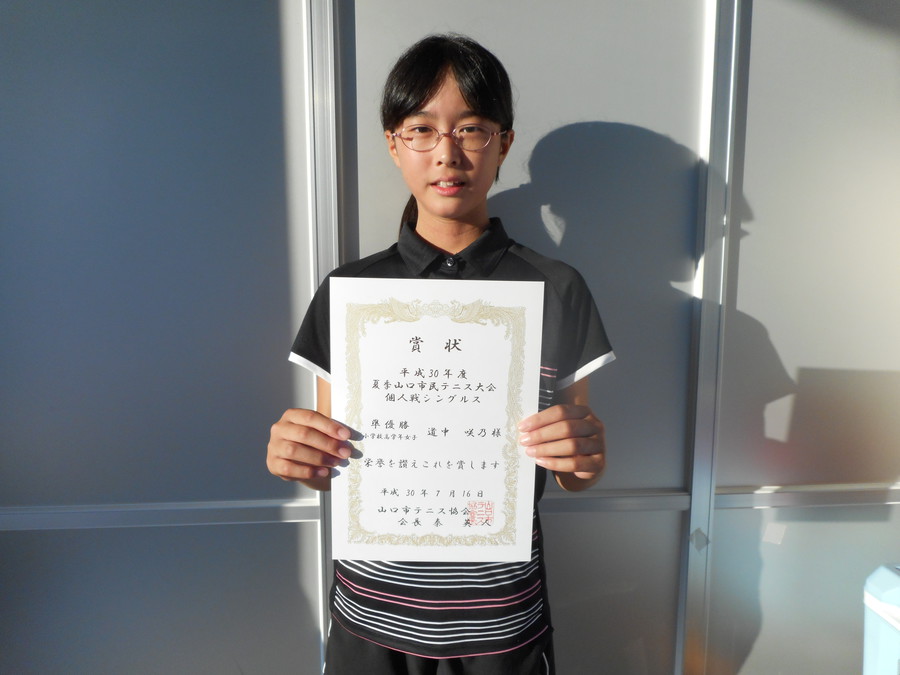 賞状
平成30年度
夏季山口市民テニス大会
個人戦シングルス
準優勝
小学校高学年女子
道中 咲乃様
栄誉を讃えこれを賞します
平成 30 年 7 月 16 日
山口市テニス協会
会長 秦 英人